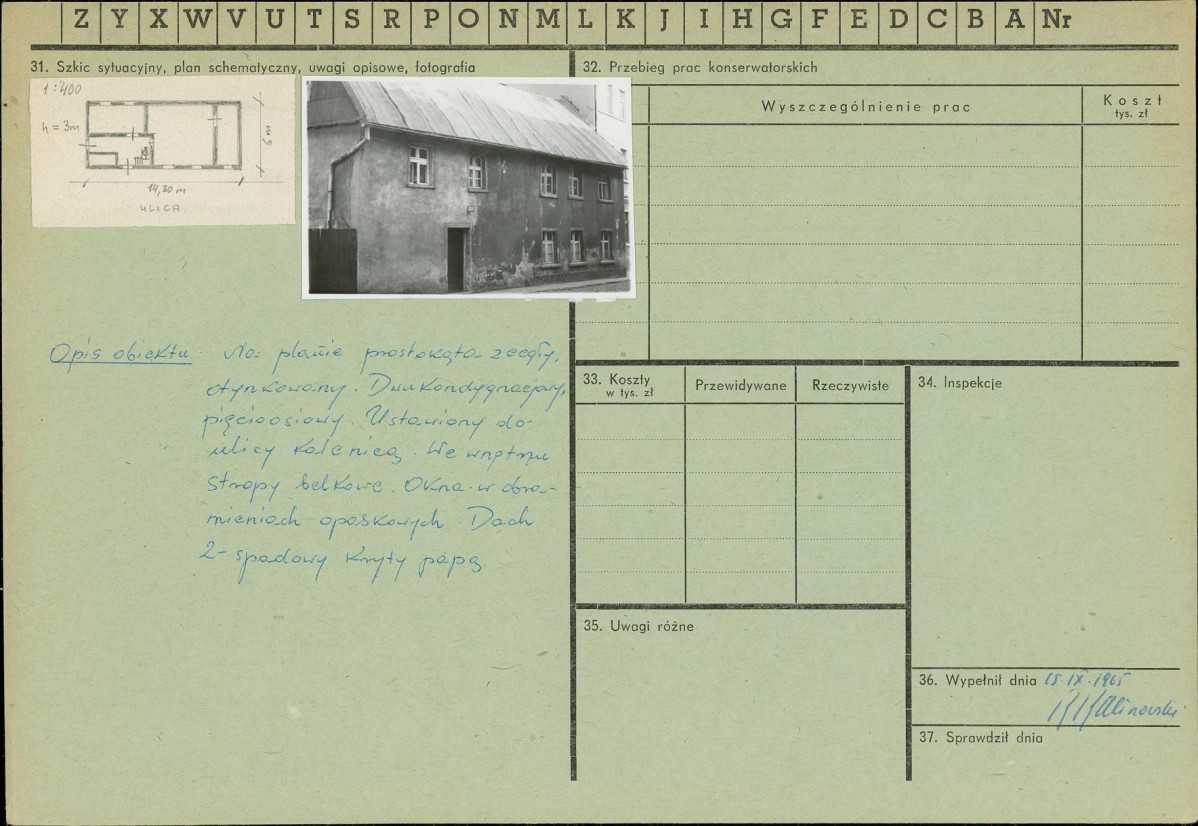 Z Y X W V U T S R P O N M L K J I H G F E D C B A Nr
31. Szkic sytuacyjny, plan schematyczny, uwagi opisowe, fotografia
1:400
h = 3m
6 m
14,30 m
ULICA
Opis obiektu: Na planie prostokąta z cegły,
otynkowany. Dwukondygnacjowy,
pięcioosiowy. Ustawiony do
ulicy kalenicą. We wnętrzu
stropy belkowe. Okna w obra-
mieniach opaskowych. Dach
2-spadowy kryty papą
32. Przebieg prac konserwatorskich
Wyszczególnienie prac
Koszt
tys. zł
33. Koszty
w tys. zł
Przewidywane
Rzeczywiste
34. Inspekcje
35. Uwagi różne
36. Wypełnił dnia 15.IX.1965
Kalinowski
37. Sprawdził dnia